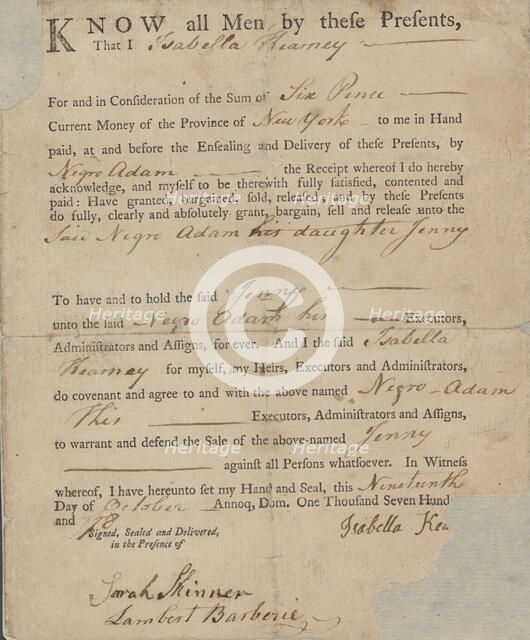 KNOW all Men by theſe Preſents,
That I Isabella Kearney
For and in Conſideration of the Sum of Six Pence
Current Money of the Province of New York to me in Hand
paid, at and before the Enſealing and Delivery of theſe Preſents, by
Negro Adam the Receipt whereof I do hereby
acknowledge, and myſelf to be therewith fully ſatisfied, contented and
paid: Have granted, bargained, ſold, releaſed, and by theſe Preſents
do fully, clearly and abſolutely grant, bargain, ſell and releaſe unto the
Said Negro Adam his daughter Jenny
To have and to hold the ſaid Jenny
unto the ſaid Negro Adam his Executors,
Adminiſtrators and Aſſigns, for ever. And I the ſaid Isabella
Kearney for myſelf, my Heirs, Executors and Adminiſtrators,
do covenant and agree to and with the above named Negro Adam
his Executors, Adminiſtrators and Aſſigns,
to warrant and defend the Sale of the above-named Jenny
againſt all Perſons whatſoever. In Witneſs
whereof, I have hereunto ſet my Hand and Seal, this Nineteenth
Day of October Annoq, Dom. One Thouſand Seven Hund
and
Isabella Kea
Signed, Sealed and Delivered,
in the Preſence of
Sarah Skinner
Lambert Barberie
©
Heritage Heritage Heritage
Heritage Heritage Heritage